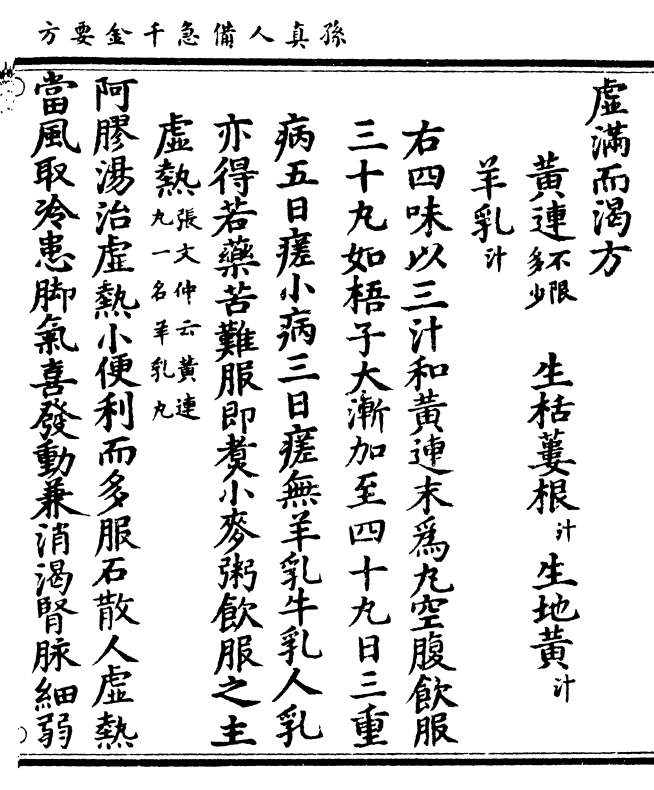 孫真人備急千金要方
虛滿而渴方
黃連不限多少 生栝蔞根汁 生地黃汁
羊乳汁
右四味以三汁和黃連末爲丸空腹飲服
三十丸如梧子大漸加至四十九日三重
病五日瘥小病三日瘥無羊乳牛乳人乳
亦得若藥苦難服即煑小麥粥飲服之主
虛熱張文仲云黃連丸一名羊乳丸
阿膠湯治虛熱小便利而多服石散人虛熱
當風取冷患脚氣喜發動兼消渴腎脉細弱